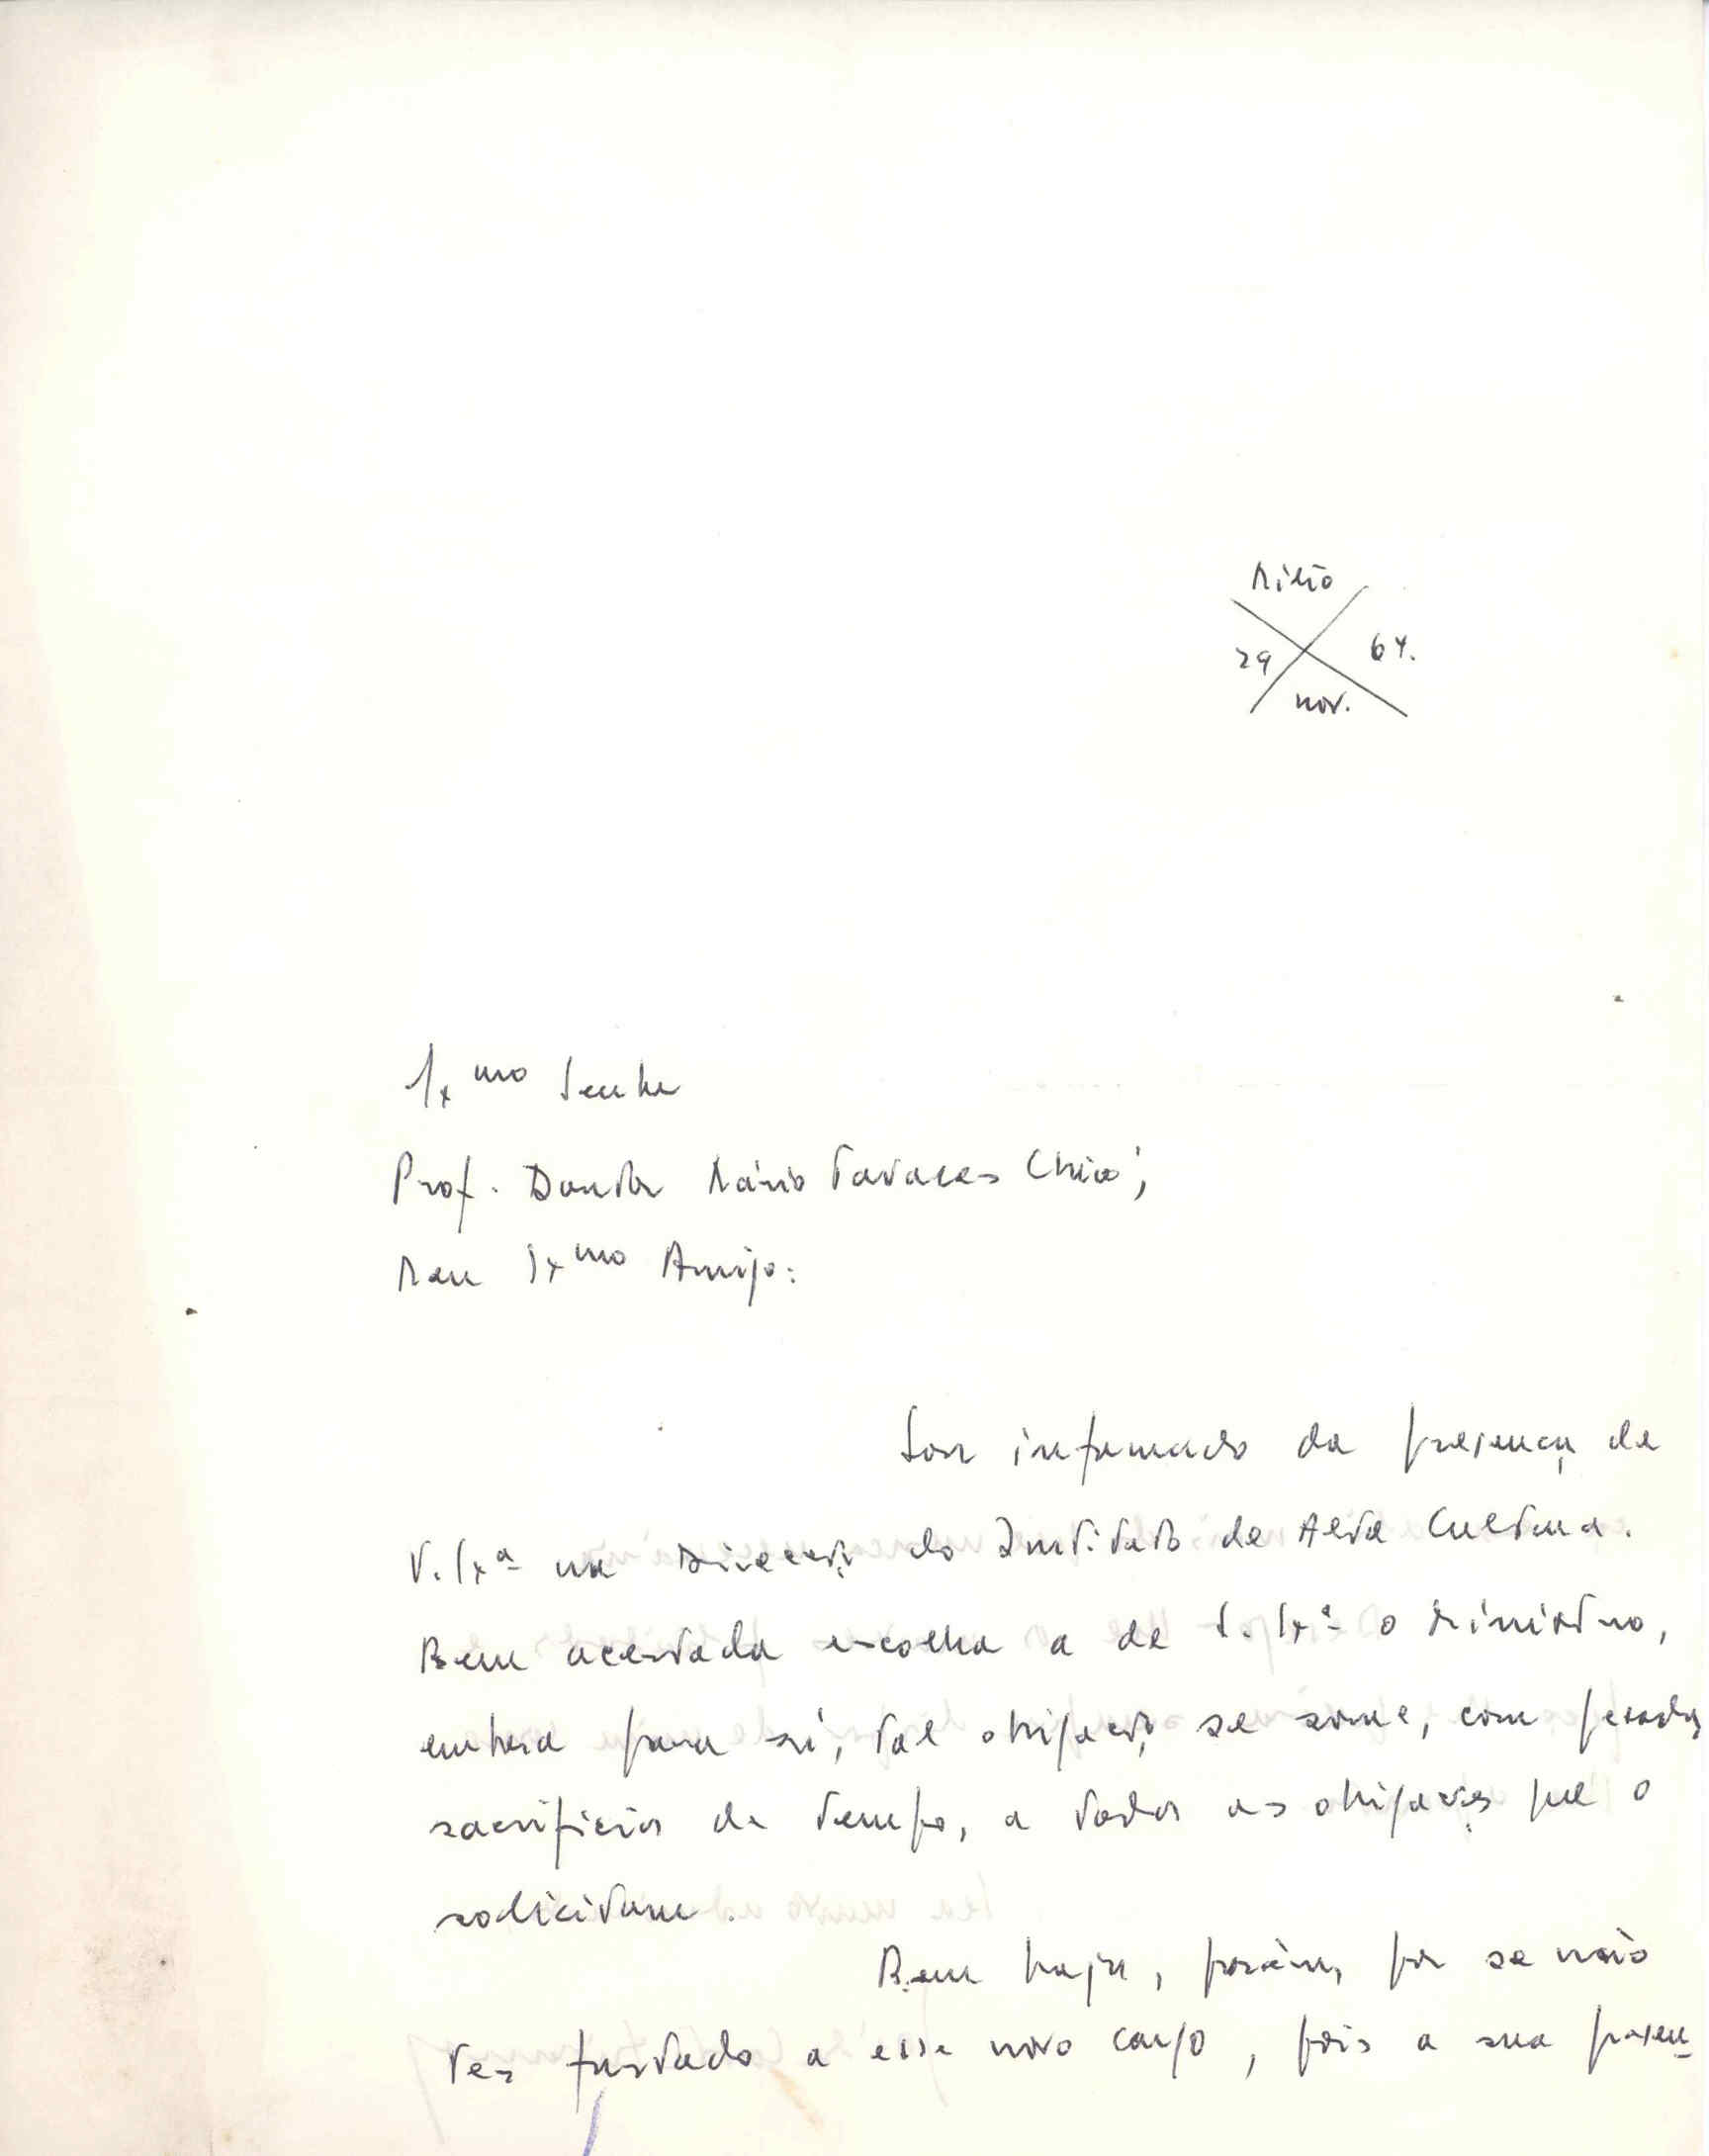 Milão
29 64.
nov.
Exmo Senhor
Prof. Doutor Mário Tavares Chicó,
Meu Exmo Amigo:
Sou informado da presença de
V. Exª na Direcção do Instituto de Alta Cultura.
Bem acertada escolha a de S. Exª o Ministro,
embora para si, tal obrigação se some, com pesados
sacrifícios de tempo, a todas as obrigações que o
solicitam.
Bem haja, porém, por se não
ter furtado a esse novo cargo, pois a sua presen-